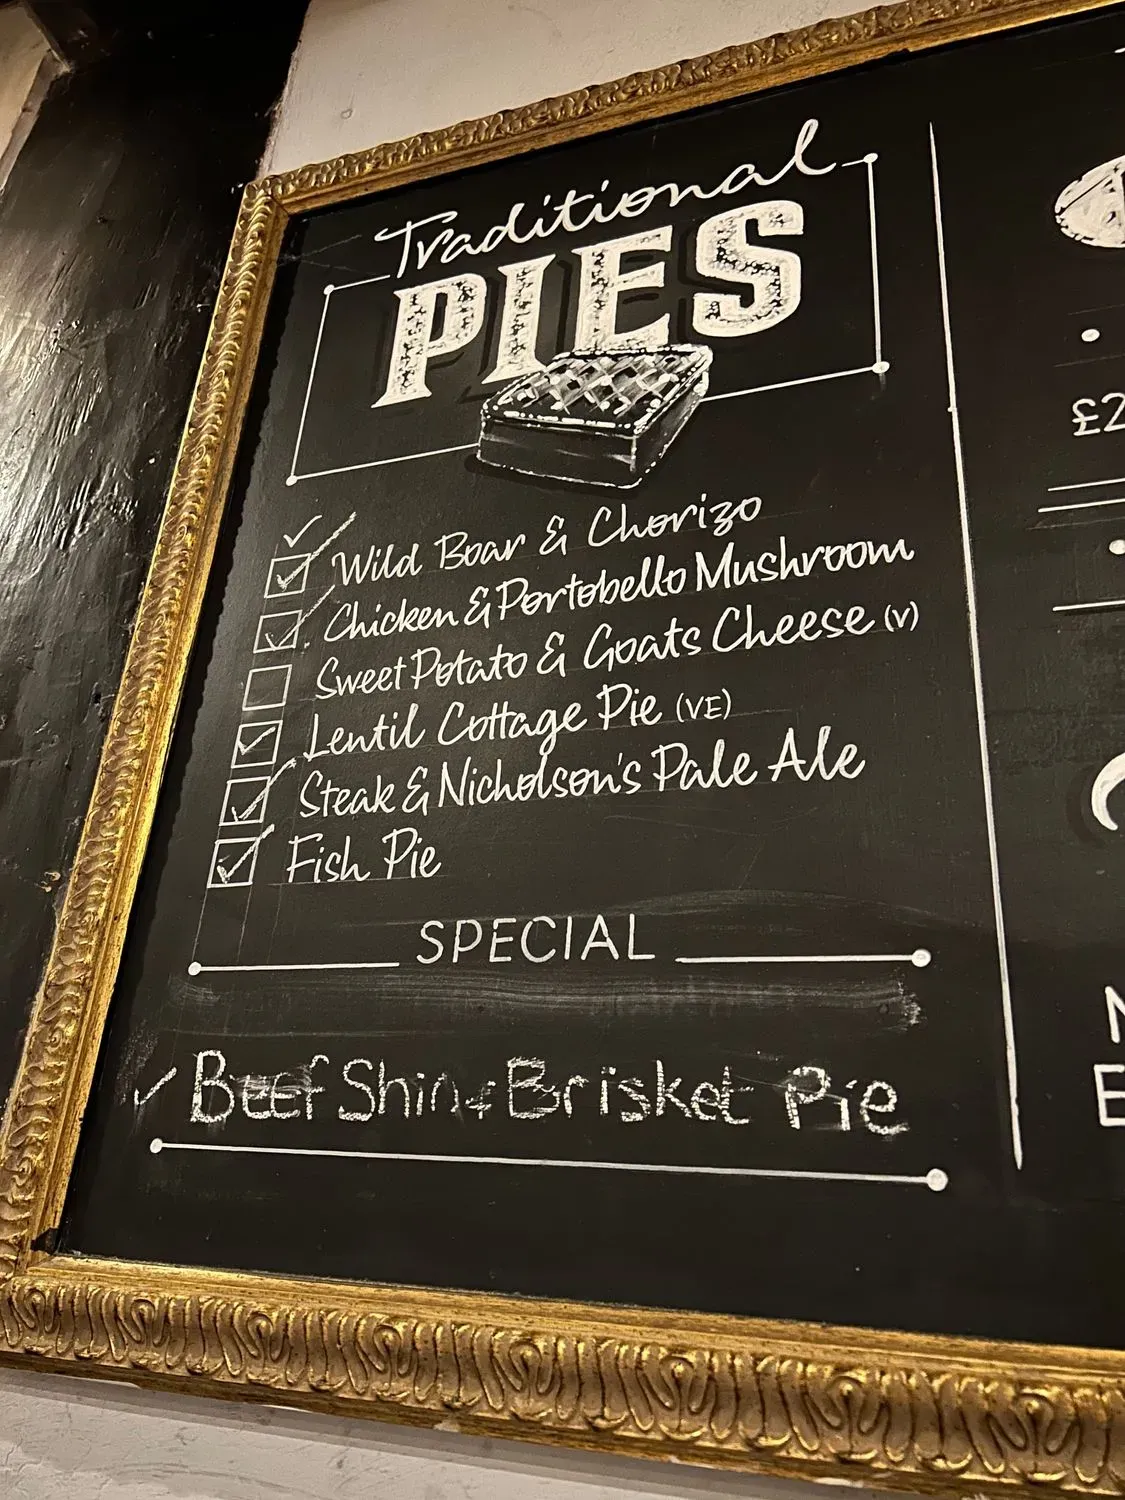 Traditional
PIES
Wild Boar & Chorizo
Chicken & Portobello Mushroom
Sweet Potato & Goats Cheese (V)
Lentil Cottage Pie (VE)
Steak & Nicholson's Pale Ale
Fish Pie
SPECIAL
Beef Shin + Brisket Pie
£2